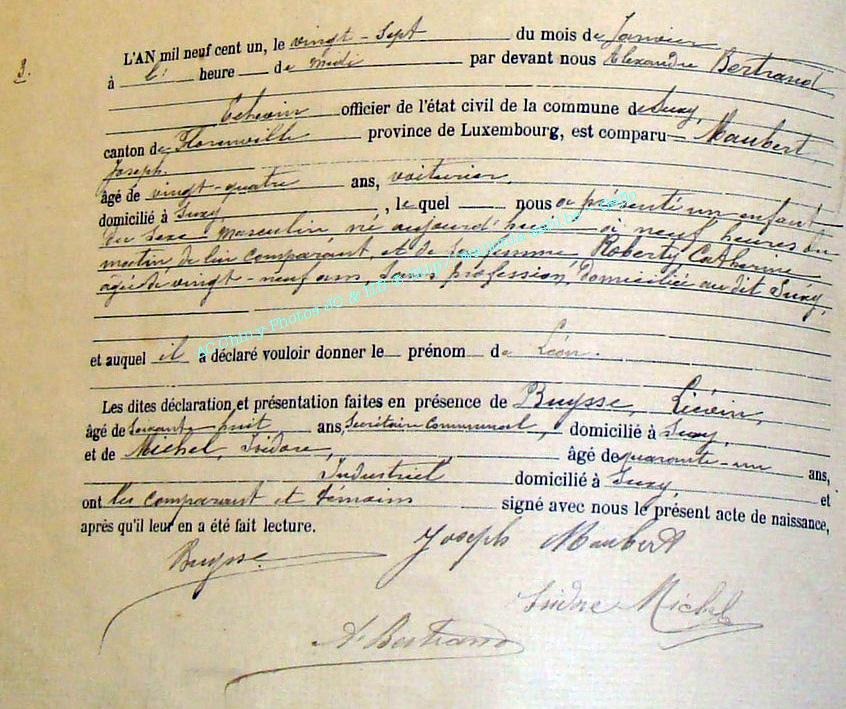 3.
L'AN mil neuf cent un, le vingt-sept du mois de Janvier
à heure de midi par devant nous Alexandre Bertrand
Echevin officier de l'état civil de la commune de Suxy,
canton de Florenville province de Luxembourg, est comparu Maubert
Joseph
âgé de vingt-quatre ans, voiturier,
domicilié à Suxy, le quel nous a présenté un enfant
du sexe masculin né aujourd'hui à neuf heures du
matin, de lui comparant, et de sa femme, Roberty Catherine
âgée de vingt-neuf ans, sans profession, domiciliée au dit Suxy,
et auquel il a déclaré vouloir donner le prénom de Léon.
Les dites déclaration et présentation faites en présence de Buysse, Liévin,
âgé de soixante huit ans, Secrétaire Communal, domicilié à Suxy,
et de Michel, Isidore, âgé de quarante-un ans,
Industriel domicilié à Suxy et
ont les comparant et témoins signé avec nous le présent acte de naissance,
après qu'il leur en a été fait lecture.
Buysse Joseph Maubert
Isidore Michel
A. Bertrand